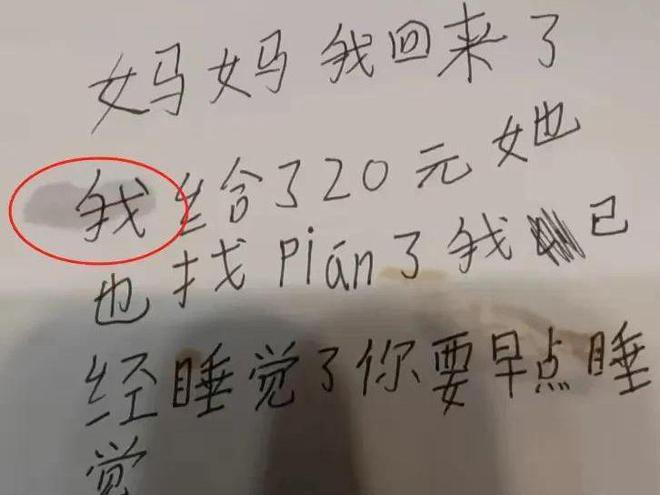 妈妈我回来了
我给了20元她
也找pián了我已
经睡觉了你要早点睡
觉